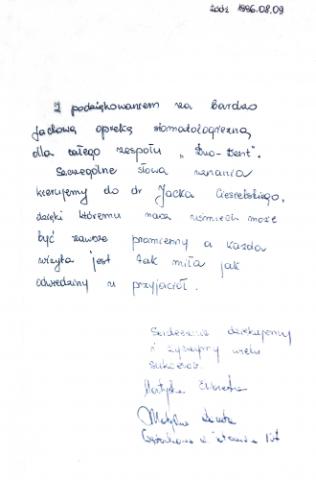 Łódź 1996.08.09
Z podziękowaniem za bardzo
fachową opiekę stomatologiczną
dla całego zespołu „Duo-Dent".
Szczególne słowa uznania
kierujemy do dr Jacka Ciesielskiego,
dzięki któremu nasz uśmiech może
być zawsze promienny a każda
wizyta jest tak miła jak
odwiedziny u przyjaciół.
Serdecznie dziękujemy
i życzymy wielu
sukcesów.